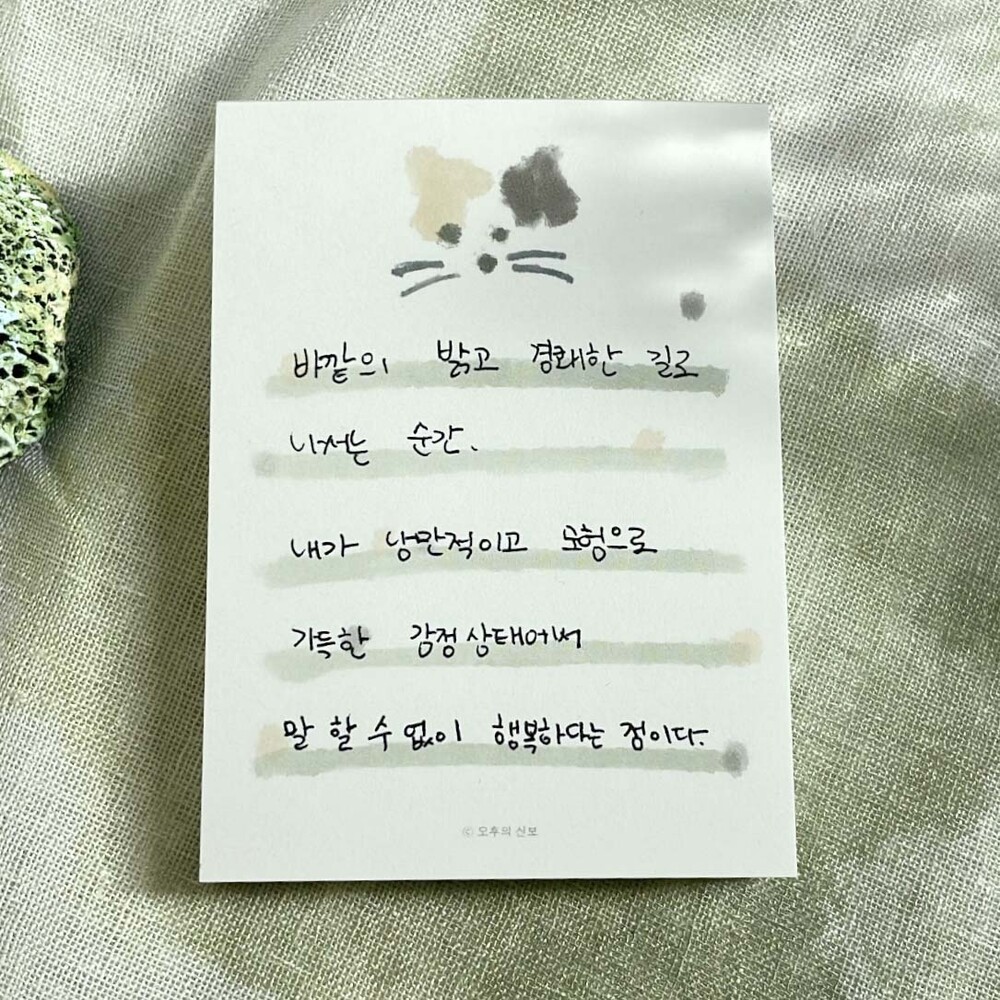 바깥의 밝고 경쾌한 길로
나서는 순간.
내가 낭만적이고 모험으로
가득한 감정 상태여서
말 할 수 없이 행복하다는 점이다.
© 오후의 신보